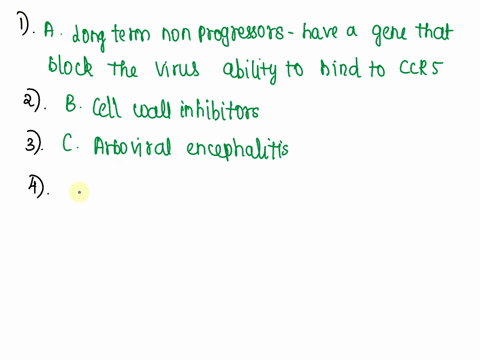 1). A. Long term non progressors - have a gene that
block the virus ability to bind to CCR5
2). B. Cell wall inhibitors
3). C. Arboviral encephalitis
4).